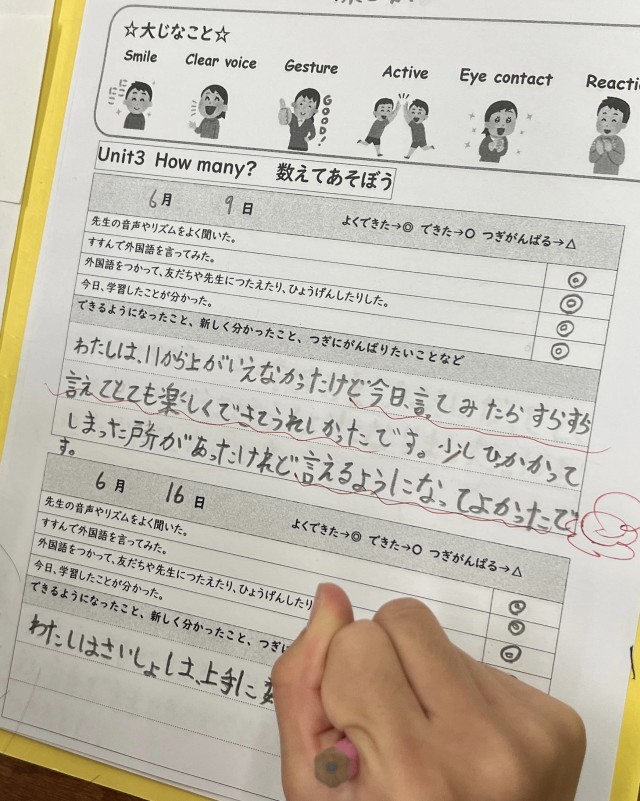 ☆大じなこと☆
Smile Clear voice Gesture Active Eye contact Reacti
GOOD!
Unit3 How many? 数えてあそぼう
6月 9日 よくできた→◎ できた→○ つぎがんばる→△
先生の音声やリズムをよく聞いた。 ◎
すすんで外国語を言ってみた。 ◎
外国語をつかって、友だちや先生につたえたり、ひょうげんしたりした。 ◎
今日、学習したことが分かった。 ◎
できるようになったこと、新しく分かったこと、つぎにがんばりたいことなど
わたしは、11から上がいえなかったけど今日、言てみたらすらすら
言えてとても楽しくできてうれしかったです。少しひっかかって
しまった所があったけれど、言えるようになってよかったで
す。
6月 16日 よくできた→◎ できた→○ つぎがんばる→△
先生の音声やリズムをよく聞いた。 ◎
すすんで外国語を言ってみた。 ◎
外国語をつかって、友だちや先生につたえたり、ひょうげんしたり ◎
今日、学習したことが分かった。
できるようになったこと、新しく分かったこと、つぎに
わたしはさいしょしは、上手に